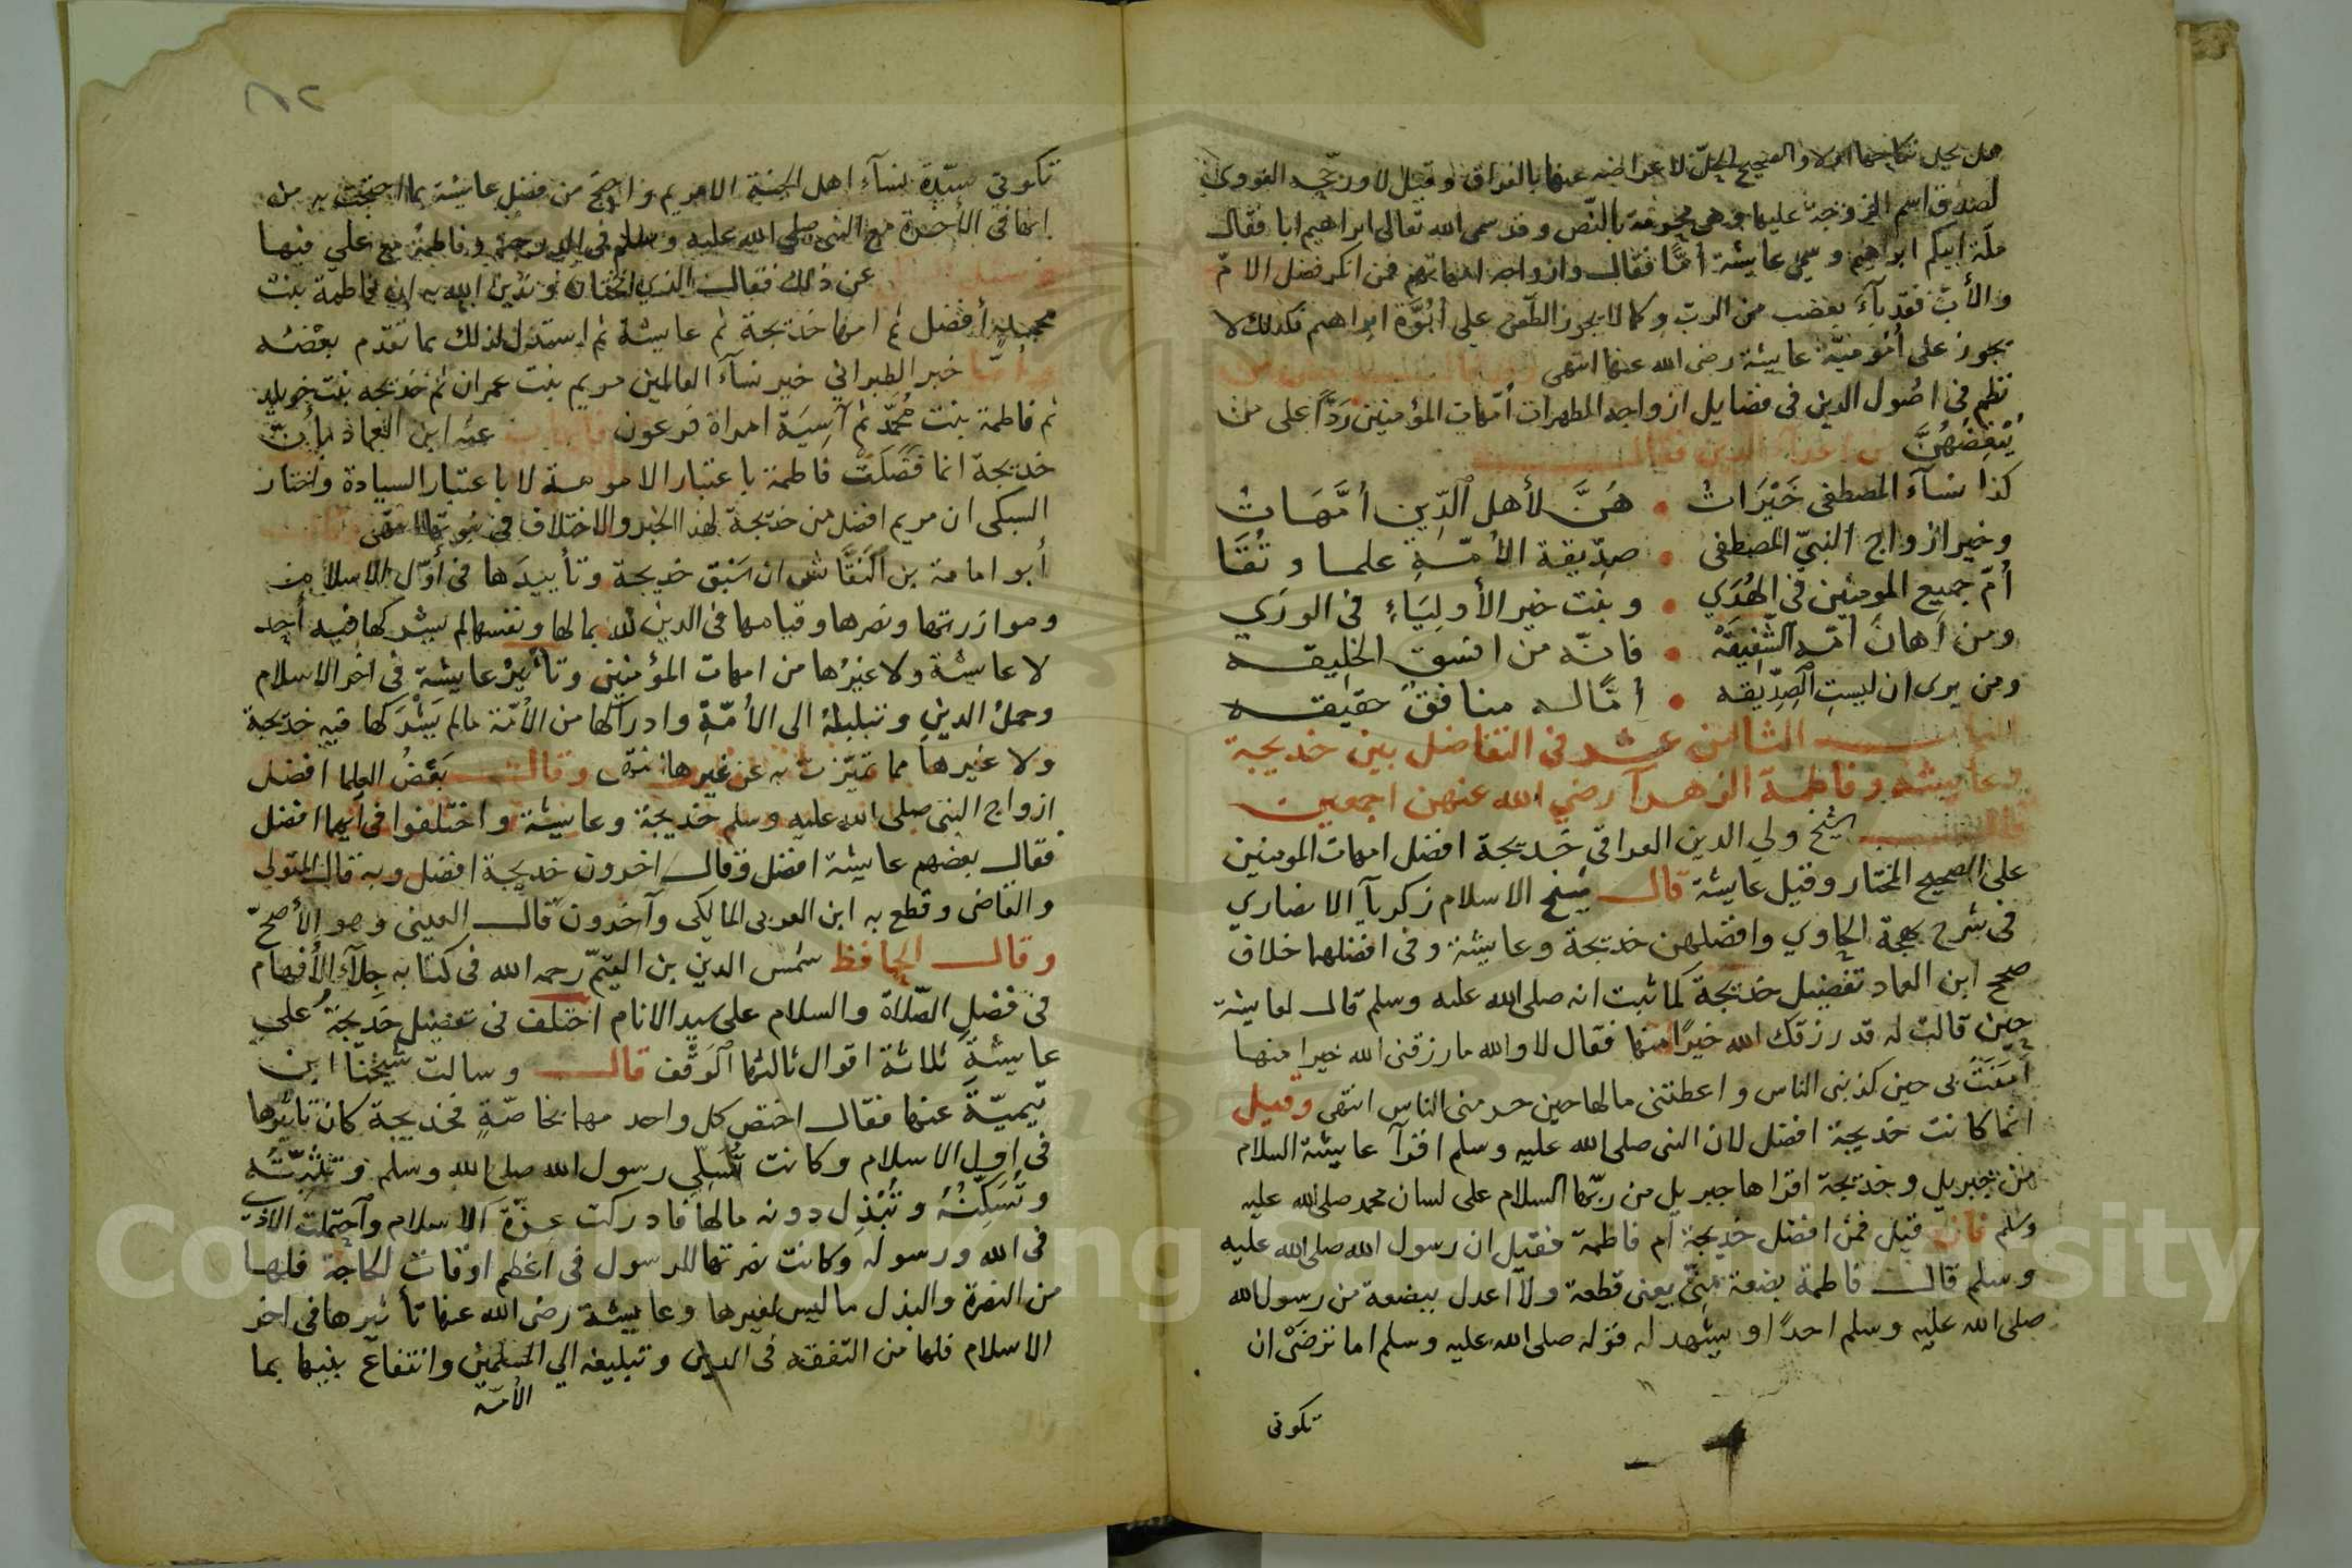 هل يحل نكاحها ام لا والصحيح الحل لاعراضه عنها بالفراق وقيل لا ورجحه النووي
لصدق اسم الزوجة عليها وهي محرمة بالنص وقد سمى الله تعالى ابراهيم ابا فقال
ملة ابيكم ابراهيم وسمى عايشة أمًّا فقال وازواجه امهاتهم فمن انكر فضل الامّ
والأب فقد بآء بغضب من الرب وكما لا يجوز الطعن على أبوّة ابراهيم فكذلك لا
يجوز على أمومية عايشة رضى الله عنها انتهى
نظم فى اصول الدين فى فضايل ازواجه المطهرات أمهات المؤمنين رَدًّا على من
يُبْغِضُهُنَّ
كذا نسآء المصطفى خَيْرَاتُ • هُنَّ لأهل الدِّين اُمَّهَاتُ
وخير ازواج النبيّ المصطفى • صدِّيقة الأمّةِ علما وتُقَا
اُمّ جميع المومنين في الهُدَي • وبنت خير الأولِيَاءِ فى الورَي
ومن اَهانَ امّه الشَّفِيقَهْ • فانّه من افسق الخليقه
ومن يرى ان ليستِ الصِّدِّيقه • اُمًّا له منافقٌ حقيقه
البا‍ب الثامن عشر فى التفاضل بين خديجة
وعايشة وفاطمة الزهرآ رضي الله عنهن اجمعين
قال الشيخ ولي الدين العراقي خَديجة افضل امهات المومنين
على الصحيح المختار وقيل عايشة قال شيخ الاسلام زكريآ الانصاري
فى شرح بهجة الحاوي وافضلهن خديجة وعايشة وفى افضلهما خلاف
صحح ابن العماد تفضيل خديجة لما ثبت انه صلى الله عليه وسلم قال لعايشة
حين قالت له قد رزقك الله خيرًا منها فقال لا والله ما رزقنى الله خيرا منها
آمَنَتْ بى حين كذبنى الناس واعطتنى مالها حين حرمنى الناس انتهى وقيل
انما كانت خديجة افضل لان النبى صلى الله عليه وسلم اقرآ عايشة السلام
من جبريل وخديجة اقراها جبريل من ربّها السلام على لسان محمد صلى الله عليه
وسلم فان قيل فمن افضل خديجة ام فاطمة فقيل ان رسول الله صلى الله عليه
وسلم قال فاطمة بضعة مِنِّي يعنى قطعة ولا أعدل ببضعة من رسول الله
صلى الله عليه وسلم احدًا ويشهد له قوله صلى الله عليه وسلم اما ترضَىْ ان
تكونى
تكونى سيّدة نسآء اهل الجنة الا مريم واحتج من فضل عايشة بما احتجت به من
انها فى الآخرة مع النبى صلى الله عليه وسلم فى الدرجة وفاطمة مع علي فيها
عن ذلك فقال الذى اختاره وندين الله به ان فاطمة بنت
محمد أفضل ثم امها خديجة ثم عايشة ثم استدل لذلك بما تقدم بعْضُه
وأمّا خبر الطبراني خير نسآء العالمين مريم بنت عمران ثم خديجه بنت خويلد
ثم فاطمة بنت محمّد ثم آسِيَة امراة فرعون فأجاب عنه ابن العماد بأن
خديجة انما فَضَلَتْ فاطمة باعتبار الامومة لا باعتبار السيادة واختار
السبكى ان مريم افضل من خديجة لهذا الخبر والاختلاف فى نبوتها انتهى
أبو امامة بن النَّقَّاش ان سَبْق خديجة وتأييدَها فى أوّل الاسلام
وموازرتها ونصرها وقيامها فى الدين لله بمالها ونفسها لم يشركها فيه أحد
لا عايشة ولا غيرُها من امهات المؤمنين وتأثير عايشة فى اخر الاسلام
وحملُ الدين وتبليغه الى الأمّةِ وادراكها من الأمّة ما لم يَشْرَكها فيه خديجة
ولا غيرها مما تميّزت به عن غيرها انتهى وقال بَعْضُ العلما افضل
ازواج النبى صلى الله عليه وسلم خديجة وعايشة واختلفوا فى أيهما افضل
فقال بعضهم عايشة افضل وقال اخرون خديجة افضل وبه قال المتولي
والقاضى وقطع به ابن العربى المالكى وآخرون قال العينى وهو الأصحّ
وقال الحافظ شمس الدين بن القيّم رحمه الله فى كتابه جِلَآءِ الأفهام
فى فَضْلِ الصّلاة والسلام على سيد الانام اختُلف فى تفضيل خديجة على
عايشة ثلاثة اقوال ثالثها الوقف قال وسالت شيخنا ابن
تيميّة عنها فقال اختص كل واحد مهما بخاصّةٍ فخديجة كان تاثيرها
فى اول الاسلام وكانت تُسَلِّي رسول الله صلى الله وسلم وتثبِّتُه
وتُسَكِّنُهُ وتُبْذِل دونه مالها فادركت عِزَّة الاسلام واحتملت الاذى
فى الله ورسوله وكانت نصرتها للرسول فى اعظم اوقات الحاجة فلها
من النصرة والبذل ما ليس لغيرها وعايشة رضى الله عنها تأثيرها فى اخر
الاسلام فلها من التفقه فى الدين وتبليغه الي المسلمين وانتفاع بنيها بما
الأمّه
Copyright © King Saud University